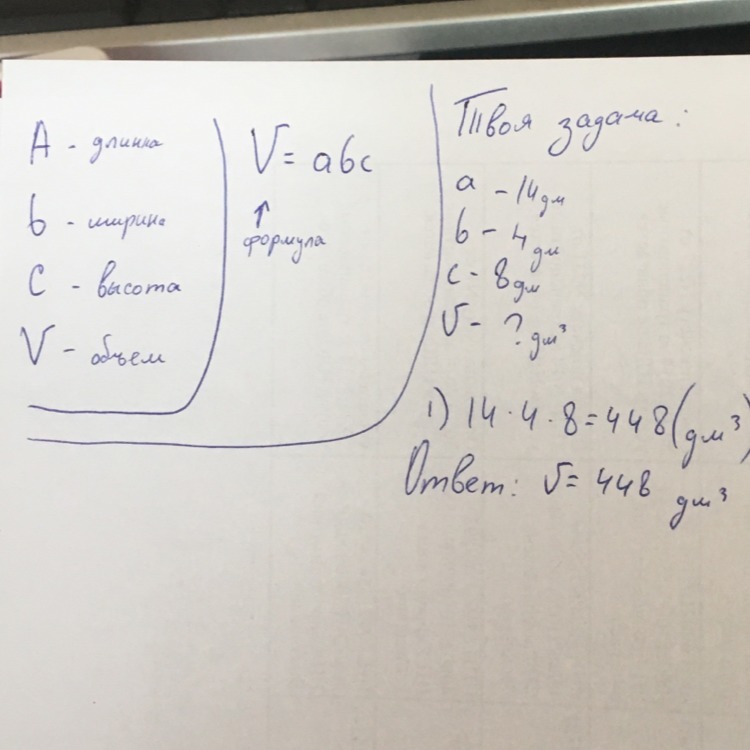 А - длинна
b - ширина
С - высота
V - объем
V = abc
↑
формула
Твоя задача:
a - 14 дм
b - 4 дм
c - 8 дм
V - ? дм³
1) 14 · 4 · 8 = 448 (дм³)
Ответ: V = 448 дм³